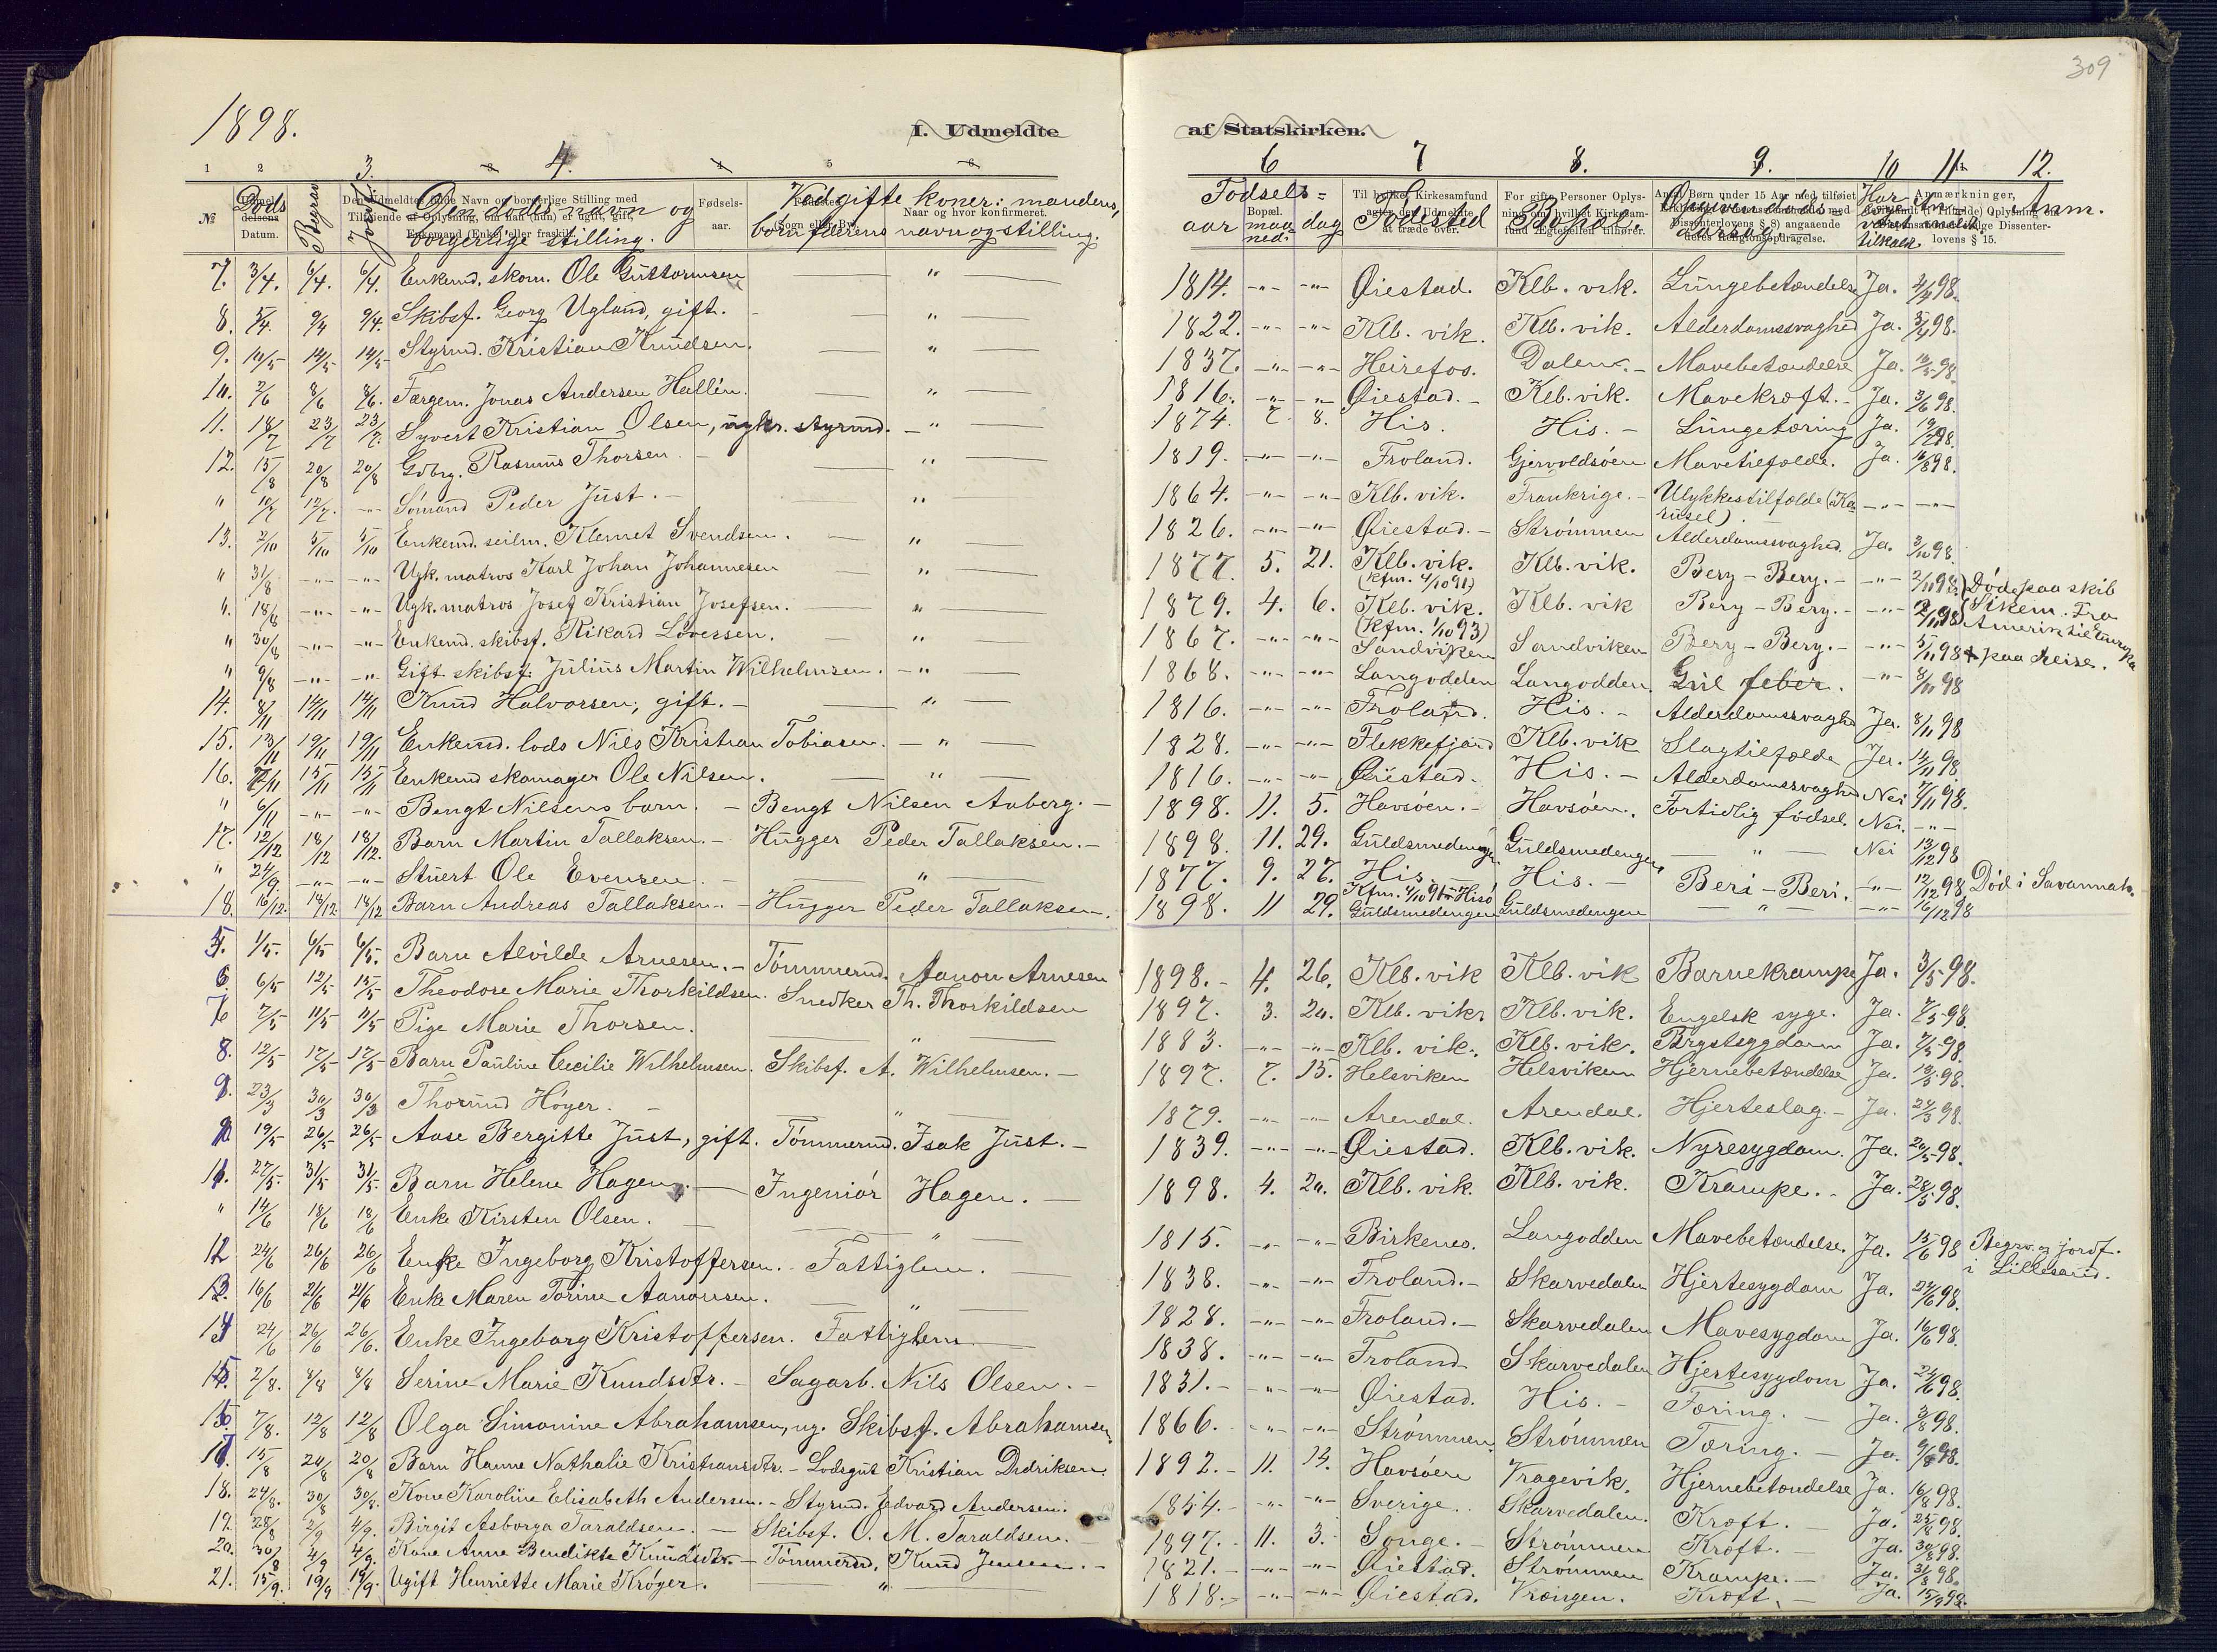 309
1898.
I. Udmeldte af Statskirken.
1 2 3. 4. 5 6 7 8. 9. 10 11. 12.
№ Døds Datum. Begrav Den døds navn og borgerlige stilling. Ved gifte koner: mandens, børn faderens navn og stilling. Fødsels= aar maaned. dag Fødested Bopæl. Opgiven døds aarsag Har læge været tilkaldt Anm.
7. 3/4. 6/4. 6/4. Enkemd. skom. Ole Guttormsen " 1814. -"- -"- Øiestad. Klb. vik. Lungebetændelse Ja. 4/4 98.
8. 5/4. 9/4 9/4. Skibsf. Georg Ugland, gift. " 1822. -"- -"- Klb. vik. Klb. vik. Alderdomssvaghed Ja. 5/4 98.
9. 10/5 14/5 14/5 Styrmd. Kristian Knudsen. " 1837. -"- -"- Heirefos. Dalen. Mavebetændelse Ja. 98.
10. 2/6 8/6 8/6. Færgem. Jonas Andersen Hallén. " 1816. -"- -"- Øiestad. Klb. vik. Mavekræft. Ja. 3/6 98.
11. 18/7 23/7 23/7. Syvert Kristian Olsen, ugkr. styrmd. " 1874. 7. 8. His. His. Lungetæring Ja. 19/7 98.
12. 15/8 20/8 20/8 Gdbrg. Rasmus Thorsen. " 1819. -"- -"- Froland. Gjervoldsøen Mavetilfælde. Ja. 16/8 98.
" 10/7 12/7. -"- Sømand Peder Just. " 1864. -"- -"- Klb. vik. Frankrige. Ulykkestilfælde (Ka-
rusel) -"- -"-
13. 2/10 5/10 5/10 Enkemd. seilm. Klemet Svendsen. " 1826. -"- -"- Øiestad. Strømmen Alderdomssvaghed. Ja. 3/10 98
" 31/8 -"- -"- Ugk. matros Karl Johan Johannesen " 1877. 5. 21. Klb. vik. (kfm. 4/10 91) Klb. vik. Bery-Bery. -"- 2/11 98. Døde paa skib
". 18/8 -"- -"- Ugk. matros Josef Kristian Josefsen. " 1879. 4. 6. Klb. vik. (kfm. 1/10 93) Klb. vik Bery-Bery. -"- 2/11 98 Sikem. Fra
" 30/8 -"- -"- Enkemd. skibsf. Rikard Löversen. " 1867. -"- -"- Sandviken Sandviken Bery-Bery. -"- 5/11 98 Amerika til Europa
" 9/8 -"- -"- Gift skibsf. Julius Martin Wilhelmsen. " 1868. -"- -"- Langodden Langodden. Gul feber. -"- 8/11 98 paa reise.
14. 8/11 14/11 14/11 Knud Halvorsen, gift. " 1816. -"- -"- Froland. His. Alderdomssvaghed Ja. 8/11 98
15. 13/11 19/11 19/11 Enkemd. lods Nils Kristian Tobiasen. " 1828. -"- -"- Flekkefjord Klb. vik Slagtilfælde Ja. 14/11 98
16. 15/11 15/11 Enkemd skomager Ole Nilsen. " 1816. -"- -"- Øiestad. His. Alderdomssvaghed Nei 98.
" 6/11 -"- -"- Bengt Nilsens barn. Bengt Nilsen Aaberg. 1898. 11. 5. Havsøen. Havsøen. Fortidlig fødsel. Nei. -"-
17. 12/12 18/12 18/12. Barn Martin Tallaksen. Hugger Peder Tallaksen. 1898. 11. 29. Guldsmedengen. Guldsmedengen " Nei 13/12 98
" 24/9. -"- -"- Stuert Ole Evensen. " 1877. 9. 27. His. Kfm. 4/10 91 Hisö His. Beri-Beri. -"- 12/12 98 Død i Savannah.
18. 16/12. 18/12 18/12 Barn Andreas Tallaksen. Hugger Peder Tallaksen. 1898. 11 29. Guldsmedengen Guldsmedengen " -"- 16/12 98
5. 1/5. 6/5 6/5. Barn Alvilde Arnesen. Tömmermd. Aanon Arnesen 1898. 4. 26. Klb. vik Klb. vik Barnekrampe Ja. 3/5 98.
6. 6/5 12/5 15/5 Theodore Marie Thorkildsen. Snedker Th. Thorkildsen 1897. 3. 20. Klb. vik. Klb. vik. Engelsk syge. Ja. 98.
7 7/5 11/5 11/5 Pige Marie Thorsen. " 1883. -"- Klb. vik. Klb. vik. Brystsygdom Ja. 7/5 98.
8. 12/5 17/5 17/5 Barn Pauline Cecilie Wilhelmsen. Skibsf. A. Wilhelmsen. 1897. 7. 15. Helsviken Helsviken Hjernebetændelse Ja. 98.
9. 23/3 30/3 30/3 Thormd Höyer. " 1879. -"- -"- Arendal. Arendal. Hjerteslag. Ja. 24/3 98.
10 19/5 26/5 26/5 Aase Bergitte Just, gift. Tömmermd. Isak Just. 1839. -"- -"- Øiestad. Klb. vik. Nyresygdom. Ja. 20/5 98.
11. 27/5 31/5 31/5. Barn Helene Hagen. Ingeniör Hagen. 1898. 4. 20. Klb. vik. Klb. vik. Krampe. Ja. 28/5 98.
" 14/6 18/6 18/6 Enke Kirsten Olsen. " 1815. -"- -"- Birkenes. Langodden Mavebetændelse. Ja. 15/6 98 Begrv. og jordf.
i Lillesand.
12 24/6 26/6 26/6 Enke Ingeborg Kristoffersen. Fattiglem. 1838. -"- -"- Froland. Skarvedalen Hjertesygdom Ja. 24/6 98.
13. 16/6 21/6 21/6 Enke Maren Torine Aanonsen. " 1828. -"- -"- Froland. Skarvedalen Mavesygdom Ja. 16/6 98.
14 24/6 26/6 26/6. Enke Ingeborg Kristoffersen. Fattiglem 1838. -"- -"- Froland Skarvedalen Hjertesygdom Ja. 24/6 98.
15. 2/8. 8/8 8/8 Serine Marie Knudsdtr. Sagarb. Nils Olsen. 1831. -"- -"- Øiestad. His. Tæring. Ja. 3/8 98.
16 7/8. 12/8 12/8 Olga Simonine Abrahamsen, ug. Skibsf. Abrahamsen. 1866. -"- -"- Strømmen. Strømmen Tæring. Ja. 9/8 98.
17. 15/8 20/8 20/8 Barn Hanne Nathalie Kristiansdtr. Lodsgut Kristian Didriksen. 1892. 11. Havsøen Vragevik. Hjernebetændelse Ja. 16/8 98.
18. 24/8. 30/8 30/8. Kone Karoline Elisabeth Andersen. Styrmd. Edvard Andersen. 1854. -"- -"- Sverige. Skarvedalen. Kræft. Ja. 25/8 98.
19. 28/8 2/9 4/9. Birgit Asborga Taraldsen. Skibsf. O. M. Taraldsen. 1897. 11. 3. Songe. Strømmen Kræft. Ja. 30/8 98.
20. 30/8 4/9 4/9. Kone Anne Bendikte Knudsdtr. Tömmermd. Knud Jensen. 1821. -"- -"- Øiestad. Strømmen Krampe. Ja. 31/8 98.
21. 15/9. 19/9 19/9. Ugift Henriette Marie Krøger. " 1818. -"- -"- Øiestad. Vrængen. Kræft. Ja. 15/9 98.